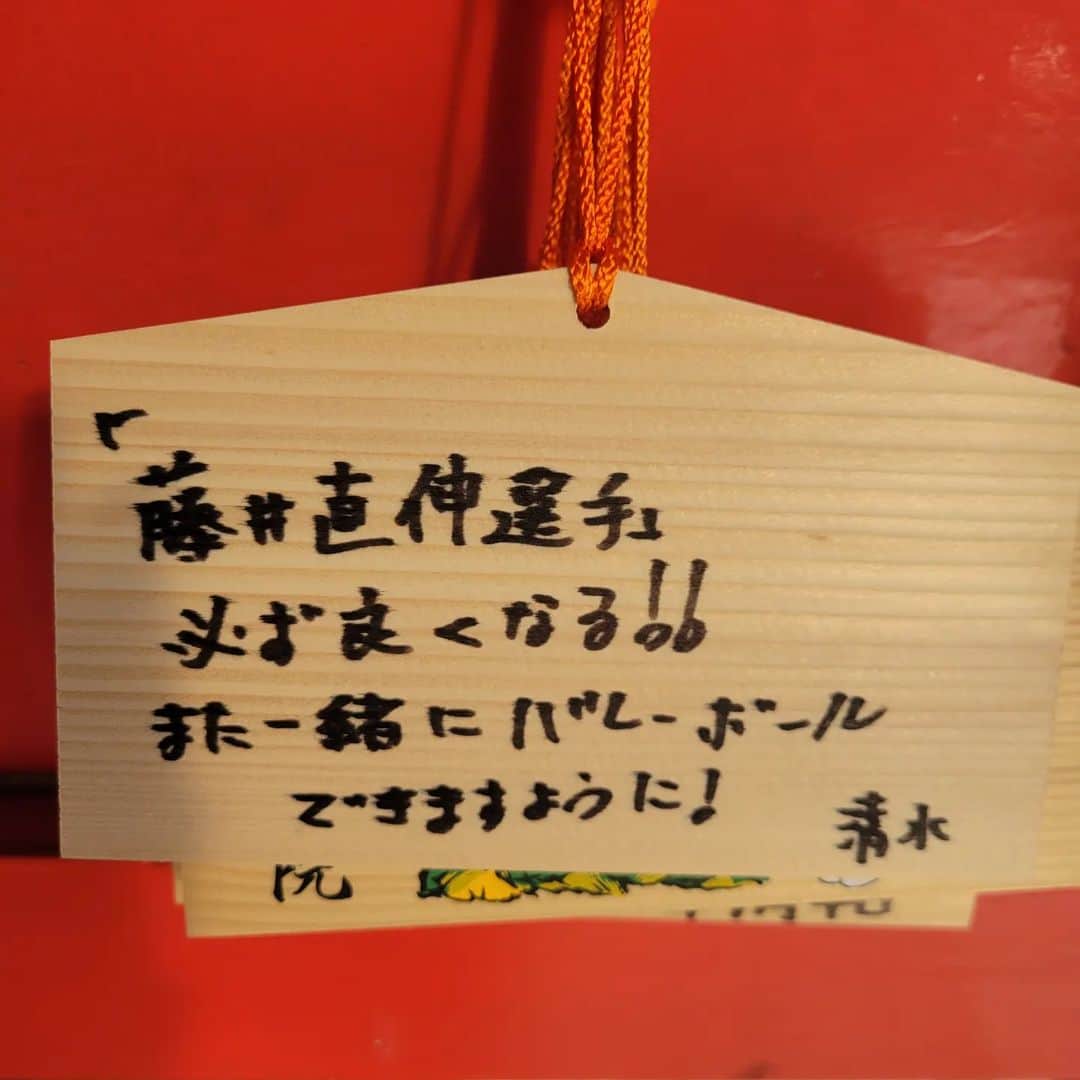 「藤井直伸選手」
必ず良くなる!!
また一緒にバレーボール
できますように!
清水
院